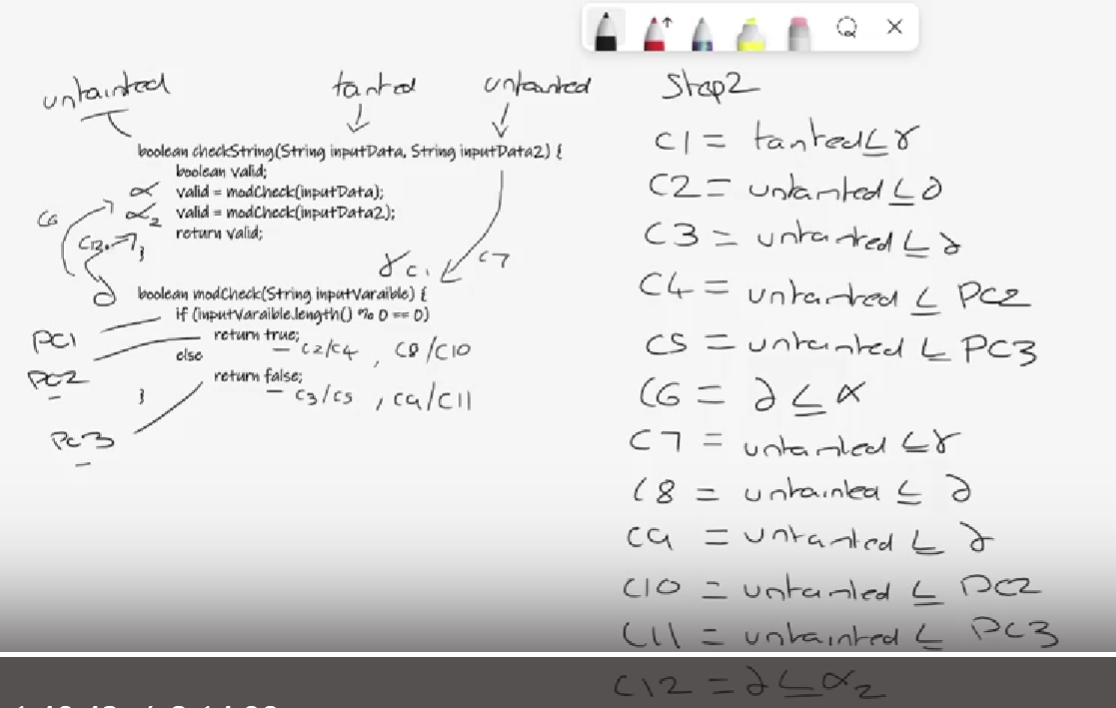 untainted
tanted
untanted
boolean checkString(String inputData, String inputData2) {
boolean valid;
α valid = modCheck(inputData);
α2 valid = modCheck(inputData2);
return valid;
}
C6
C12
γ C1
C7
∂
boolean modCheck(String inputVaraible) {
if (inputVaraible.length() % 0 == 0)
return true;
– C2/C4 , C8/C10
else
return false;
– C3/C5 , C9/C11
}
PC1
PC2
PC3
Step2
C1 = tanted ⊑ γ
C2 = untanted ⊑ ∂
C3 = untanted ⊑ ∂
C4 = untanted ⊑ PC2
C5 = untanted ⊑ PC3
C6 = ∂ ⊑ α
C7 = untanted ⊑ γ
C8 = untainted ⊑ ∂
C9 = untanted ⊑ ∂
C10 = untanted ⊑ PC2
C11 = untainted ⊑ PC3
C12 = ∂ ⊑ α2